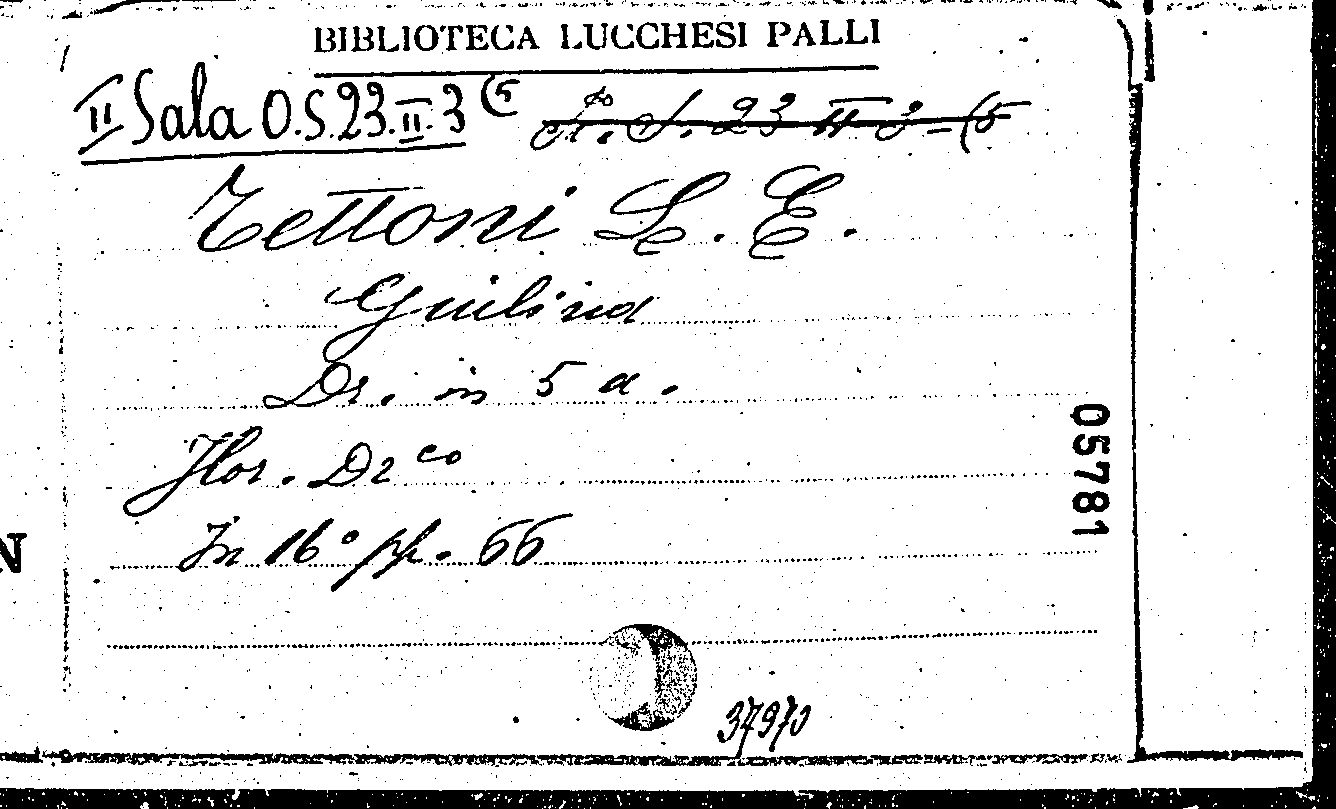 BIBLIOTECA LUCCHESI PALLI
II Sala O.S.23.II.3 (5
23 II 3-(5
Tettoni L. E.
Giulina
Dr. in 5 a.
Flor. Dr co
In 16° pp. 66
37970
05781
N